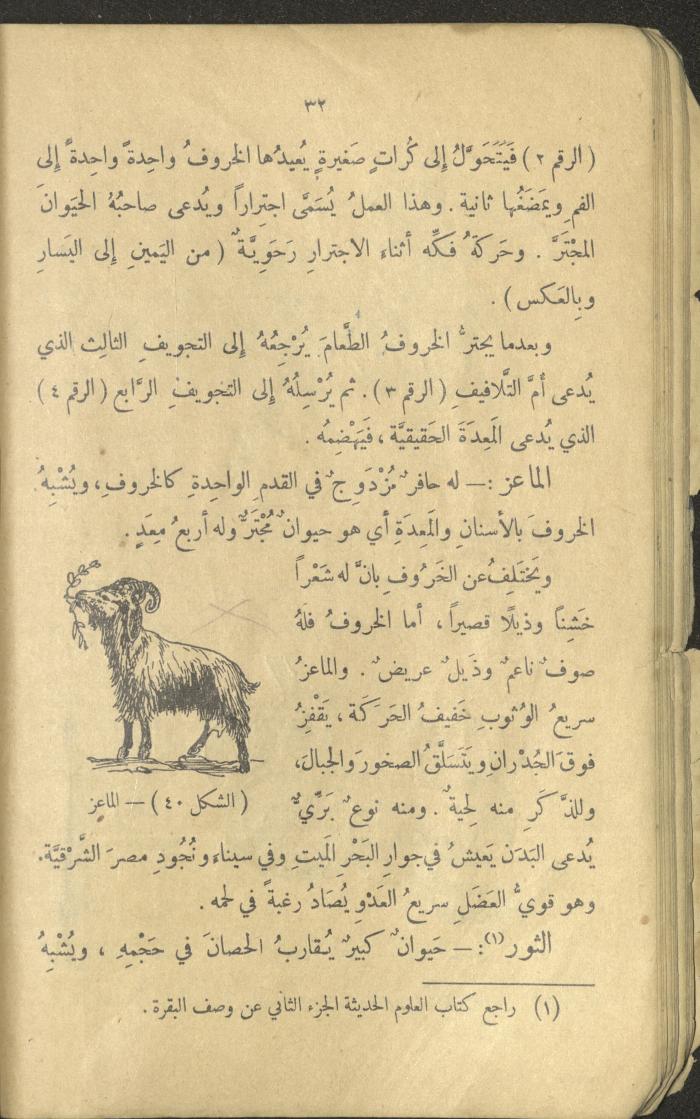 ٣٢
( الرقم ٢ ) فَيَتَحَوَّلُ إلى كُراتٍ صَغيرةٍ يُعيدُها الخروفُ واحِدةً واحِدةً إلى
الفمِ ويمَضَغُها ثانية . وهذا العملُ يُسَمَّى اجتِراراً ويُدعى صاحبُهُ الحيَوانَ
المجْتَرَّ . وحَركةُ فَكِّه أثناء الاجترارِ رَحَوِيَّةٌ ( من اليَمينِ إلى اليَسارِ
وبِالعَكس ) .
وبعدما يجترُّ الخروفُ الطَّعامَ يُرْجِعُهُ إلى التجويفِ الثالِث الذي
يُدعى أُمَّ التَّلافيفِ ( الرقم ٣ ) . ثم يُرْسِلُهُ إلى التجويفِ الرَّابع ( الرقم ٤ )
الذي يُدعى المَعِدَةَ الحَقيقيَّة ، فَيَهْضِمُه .
الماعز :— له حافرٌ مُزْدَوِجٌ في القدمِ الواحِدةِ كالخروفِ، ويُشْبِهُ
الخروفَ بالأسنانِ والمَعِدَةِ أي هو حيوانٌ مُجْتَرٌّ وله أربعُ مِعَدٍ .
ويَختَلِفُ عن الخَرُوفِ بانَّ له شَعْراً
خَشِناً وذيلًا قصيراً ، أما الخروفُ فلَهُ
صوفٌ ناعمٌ وذَيلٌ عريضٌ . والماعزُ
سريعُ الوُثوبِ خَفيفُ الحَرَكَة ، يَقْفِزُ
فوقَ الجُدْرانِ ويَتَسَلَّقُ الصخورَ والجبالَ،
وللذَّكَرِ منه لِحيةٌ . ومنه نوعٌ بَرِّيٌّ
( الشكل ٤٠ ) — الماعز
يُدعى البَدَن يَعيشُ في جوارِ البَحْرِ المَيتِ وفي سيناء ونُجُودِ مصرَ الشَّرْقيَّة.
وهو قويُّ العَضَلِ سريعُ العَدْوِ يُصَادُ رغبةً في لحمه .
الثور (١) :— حَيوانٌ كبيرٌ يُقاربُ الحصانَ في حَجْمِهِ ، ويُشْبِهُ
(١) راجع كتاب العلوم الحديثة الجزء الثاني عن وصف البقرة .